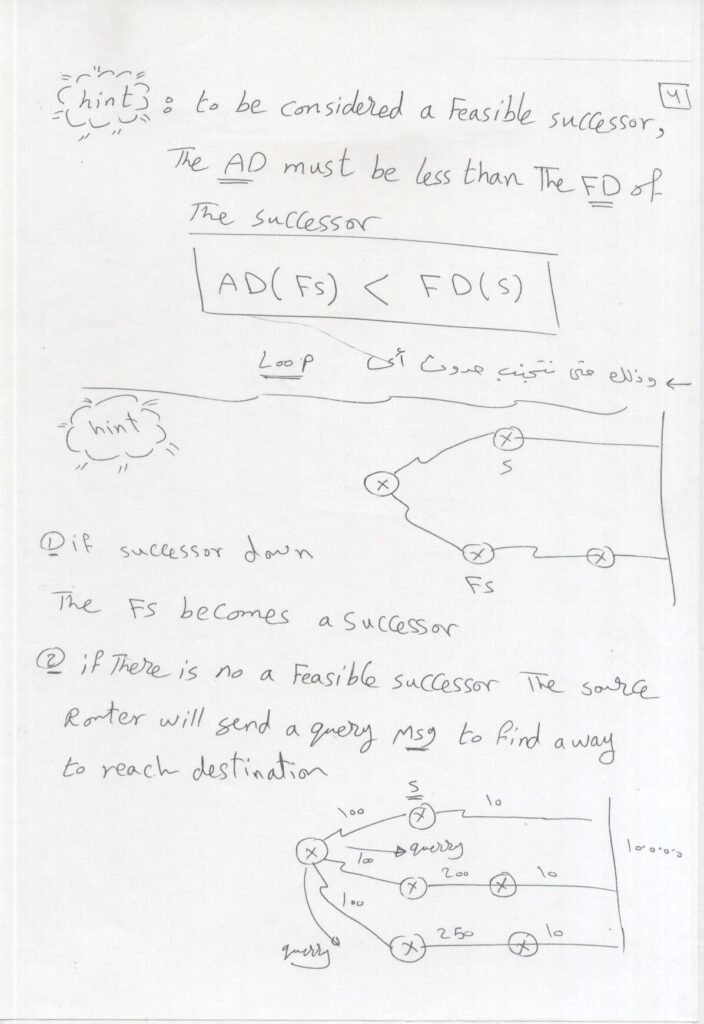 hint : to be considered a Feasible successor,
4
The AD must be less than The FD of
The successor
AD(Fs) < FD(S)
← وذلك حتى نتجنب حدوث أى Loop
hint
S
Fs
① if successor down
The FS becomes a successor
② if There is no a Feasible successor The source
Router will send a query Msg to find a way
to reach destination
S
100 10
10.0.0.0
querry
100 200 10
100
250 10
querry